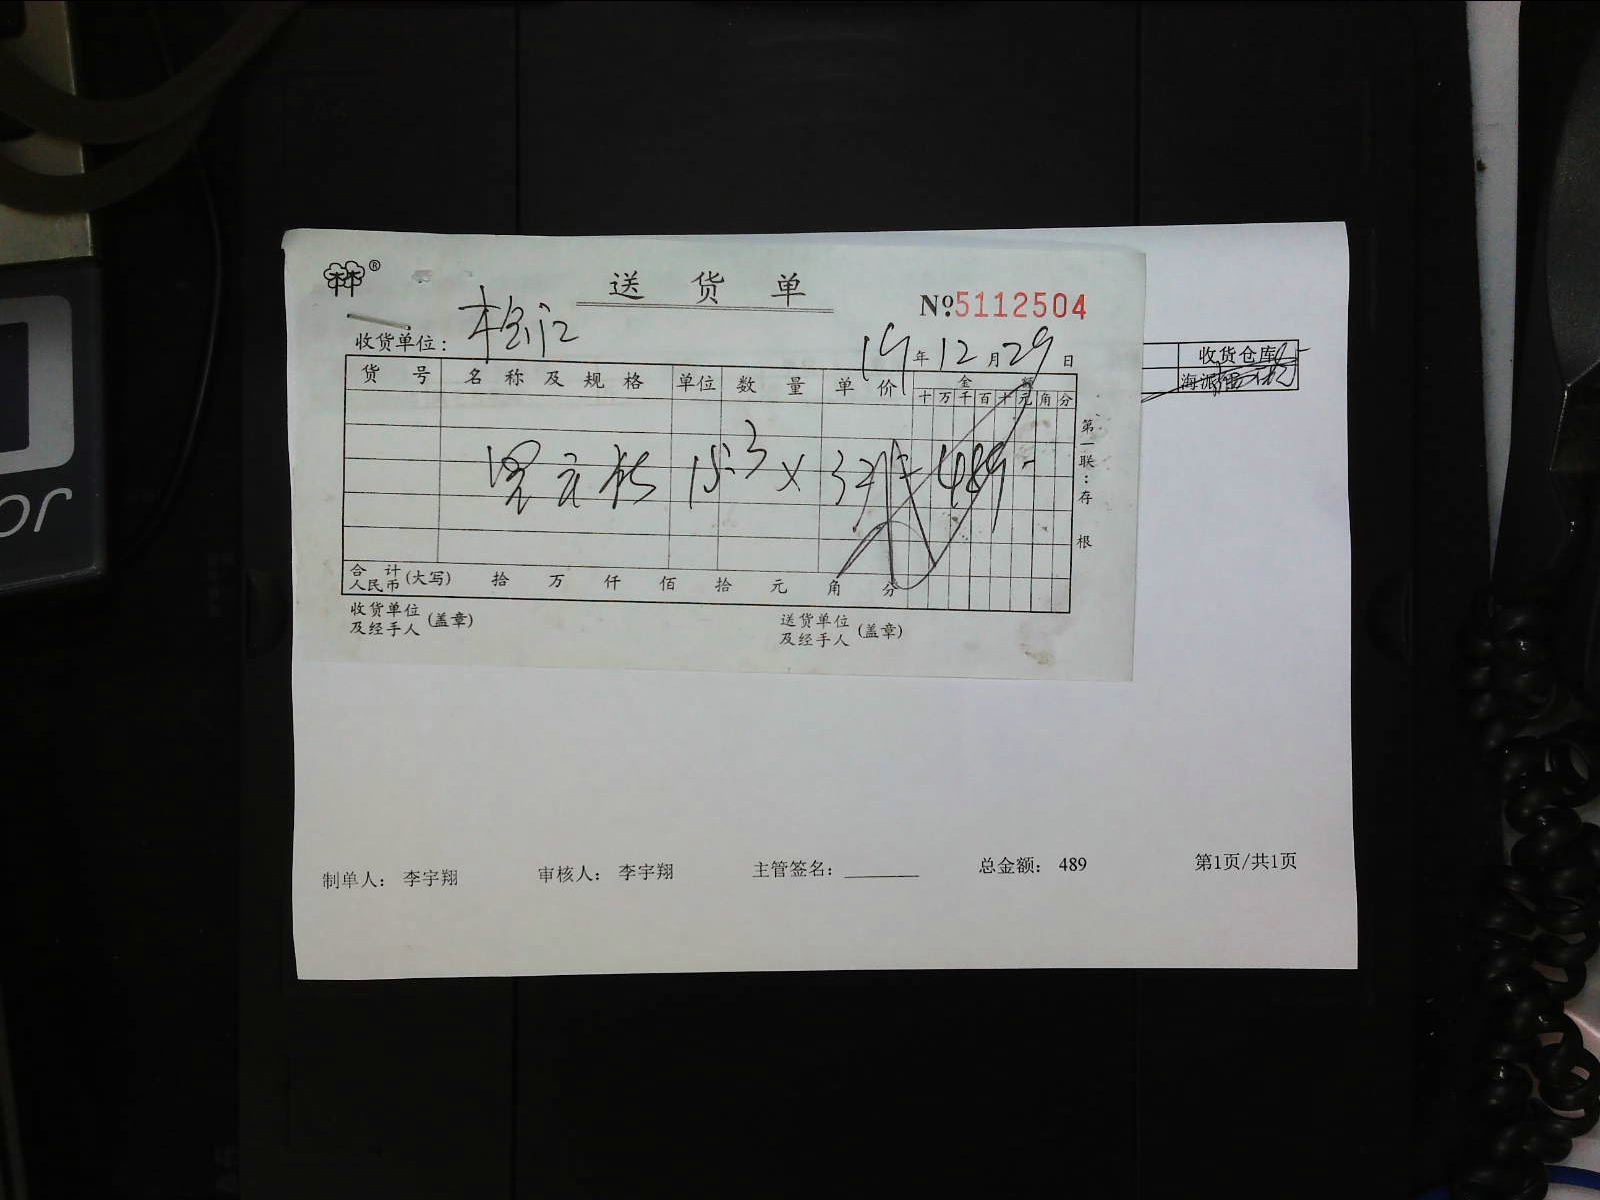 ®
送货单
№5112504
收货单位：
19年12月29日
收货仓库
货号 名称及规格 单位 数量 单价 金额
十万千百十元角分
海派
15.3 × 32 = 489 -
第一联：存根
合计人民币(大写) 拾 万 仟 佰 拾 元 角 分
收货单位及经手人(盖章)
送货单位及经手人(盖章)
制单人： 李宇翔 审核人： 李宇翔 主管签名： 总金额： 489 第1页/共1页
or